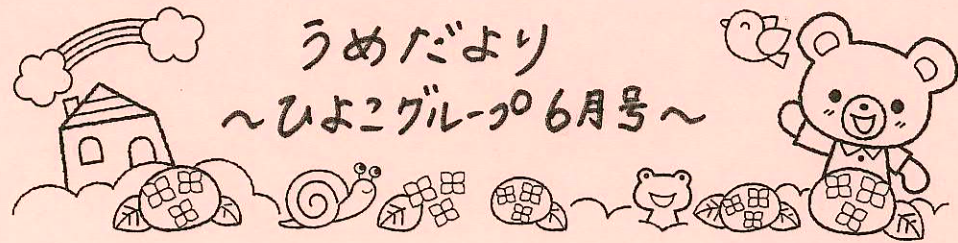 うめだより
～ひよこグループ6月号～